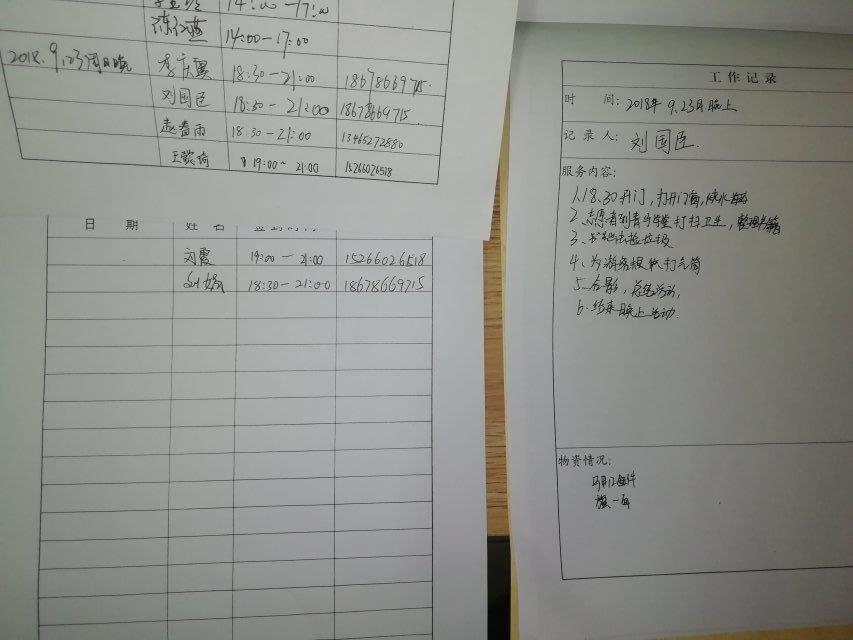 14:00-17:00
14:00-17:00
2018.9.23周日晚 李庆翼 18:30-21:00 18678669715
刘国臣 18:30-21:00 18678669715
赵春雨 18:30-21:00 13465272880
王懿琦 19:00~21:00 15266026518
日 期 姓 名
刘霞 19:00-21:00 15266026518
18:30-21:00 18678669715
工作记录
时 间: 2018年9.23日晚上
记录人: 刘国臣
服务内容:
1.18.30开门,打开门窗,烧水
2.志愿者到青马学堂打扫卫生,整理书籍
3、捡垃圾
4、为游客提供打气筒
5、合影,总结活动,
6.结束晚上活动.
物资情况: